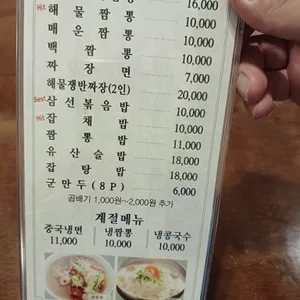 16,000
Hit 해물짬뽕 10,000
매운짬뽕 10,000
백짬뽕 10,000
짜장면 7,000
해물쟁반짜장(2인) 20,000
Best 삼선볶음밥 10,000
Hit 잡채밥 10,000
짬뽕밥 11,000
유산슬밥 18,000
잡탕밥 18,000
군만두(8P) 6,000
곱배기 1,000원~2,000원 추가
계절메뉴
중국냉면 냉짬뽕 냉콩국수
11,000 10,000 10,000